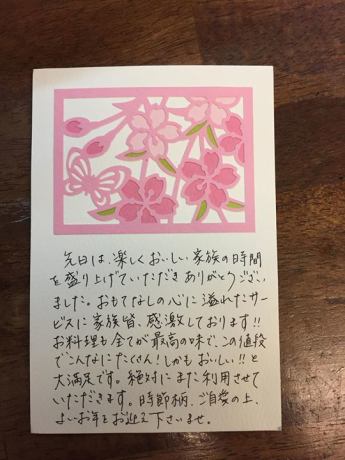 先日は、楽しくおいしい家族の時間
を盛り上げていただきありがとうござい
ました。おもてなしの心に溢れたサー
ビスに家族皆、感激しております!!
お料理も全てが最高の味で、この値段
でこんなにたくさん!しかもおいしい!!と
大満足です。絶対にまた利用させて
いただきます。時節柄、ご自愛の上、
よいお年をお迎え下さいませ。